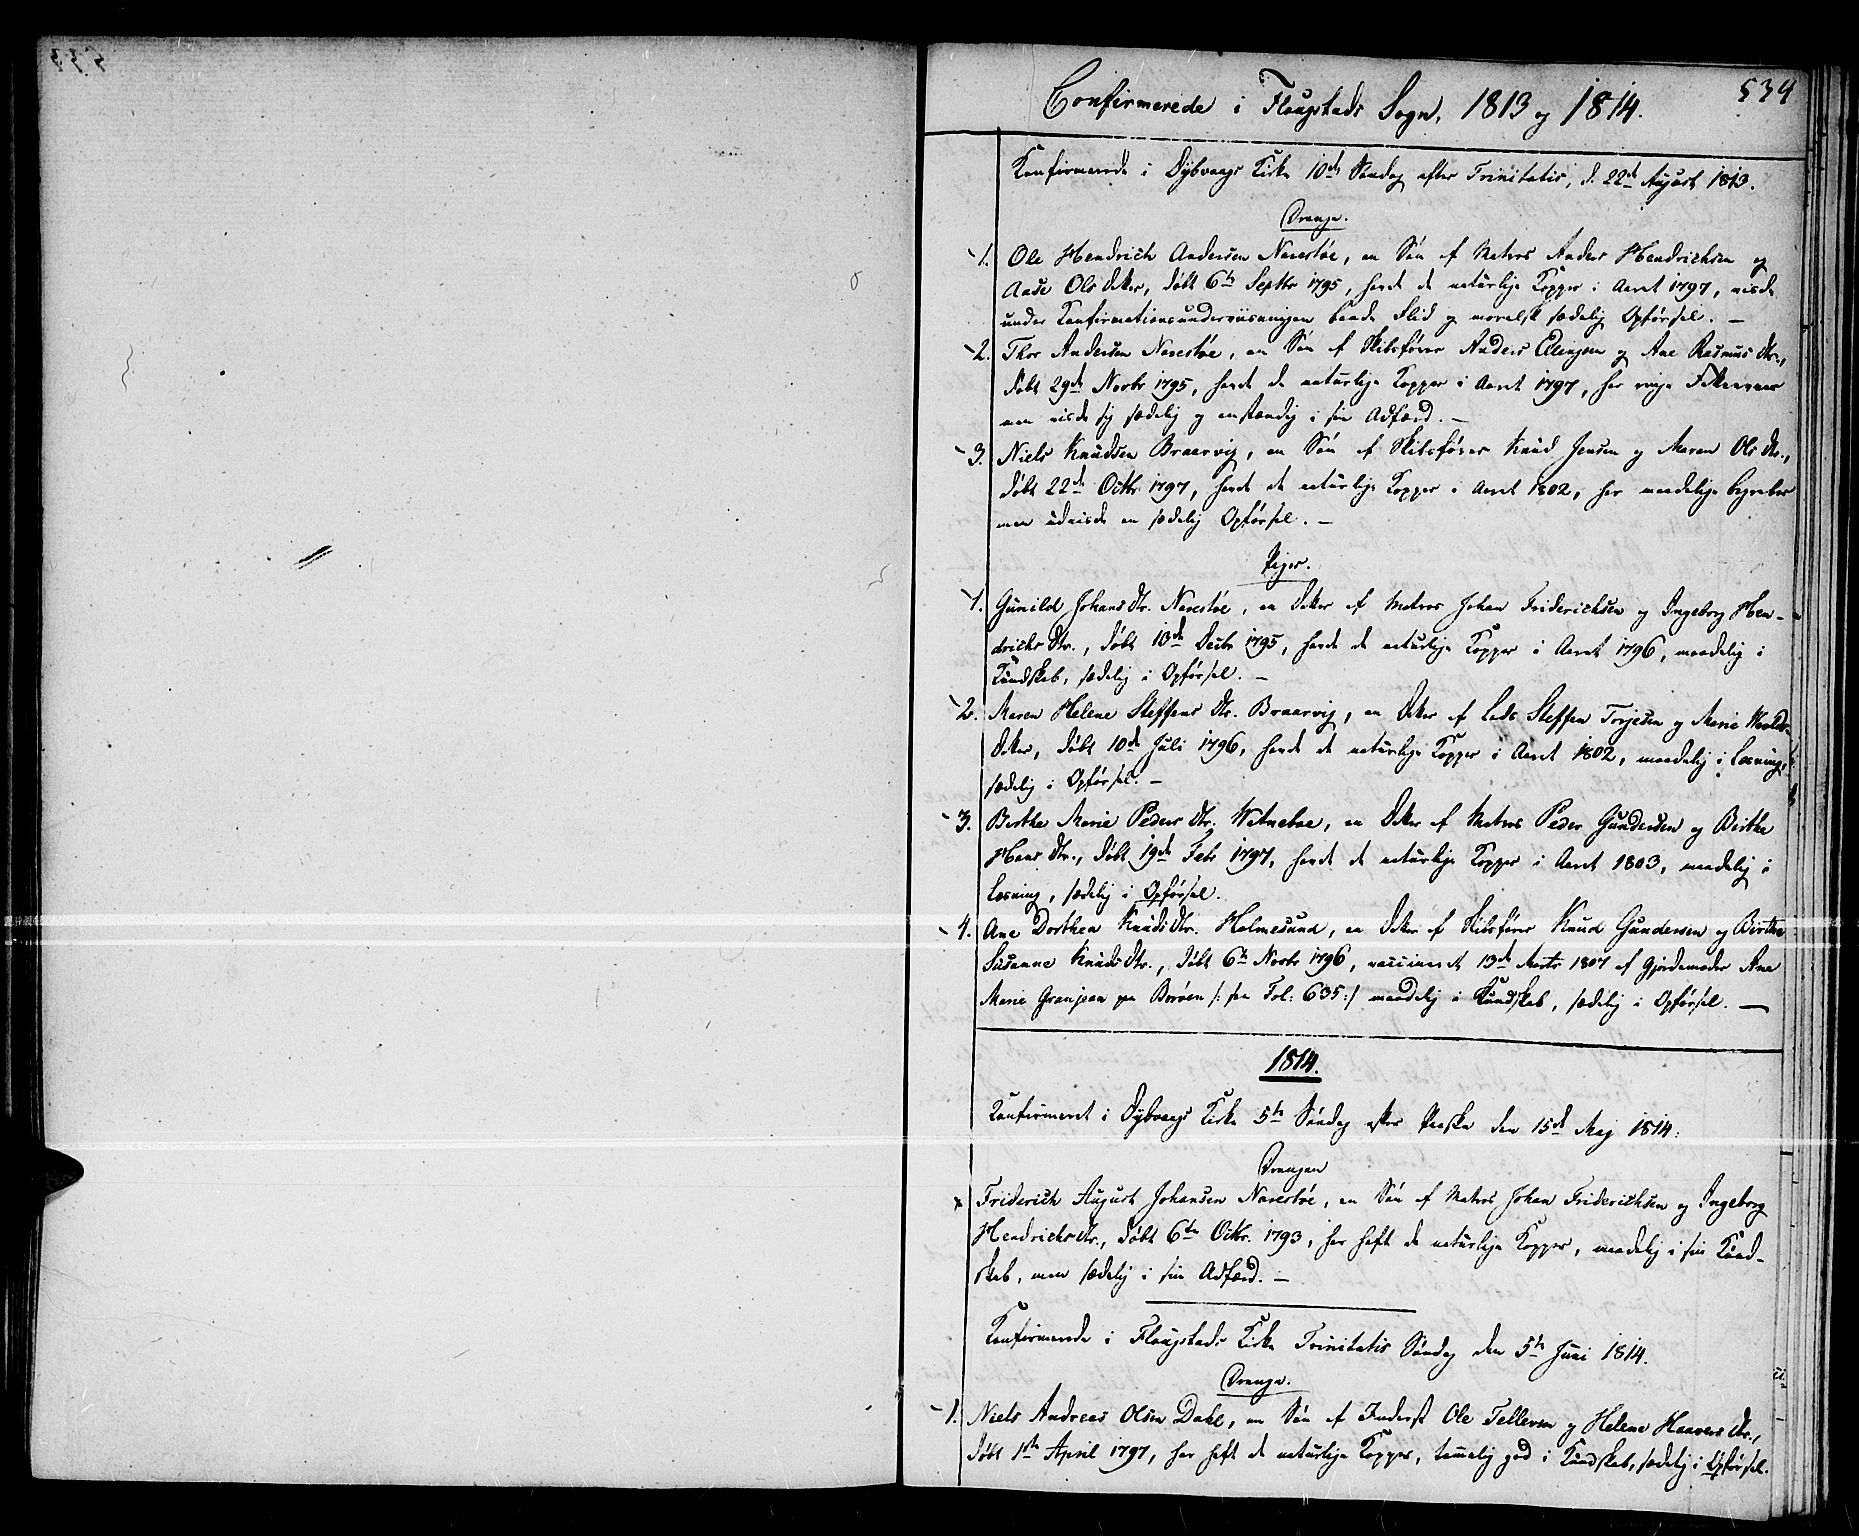 534
Confirmerede i Flougstads Sogn, 1813 og 1814.
Konfirmerede i Dybvaags Kirke 10de Søndag efter Trinitatis, d. 22de August 1813.
Drenge.
1. Ole Hendrich Andersen Narestøe, en Søn af Matros Anders Hendrichsen og
Aase Ols Datter, døbt 6te Septbr 1795, havde de naturlige Kopper i Aaret 1797, viste
under Konfirmationsunderviisningen baade Flid og moralsk sædelig Opførsel. —
2. Thor Andersen Narestøe, en Søn af Skibsfører Anders Ellingsen og Ane Rasmus Dtr.,
døbt 29de Novbr 1795, havde de naturlige Kopper i Aaret 1797, har ringe
men viste sig sædelig og anstændig i sin Adfærd. —
3. Niels Knudsen Braarvig, en Søn af Skibsfører Knud Jensen og Maren Ols Dtr.,
døbt 22de Octbr. 1797, havde de naturlige Kopper i Aaret 1802, har maadelige Begreber
men udviste en sædelig Opførsel. —
Piger.
1. Gunild Johans Dtr. Narestøe, en Datter af Matros Johan Friderichsen og Ingeborg Hen-
drichs Dtr., døbt 13de Decbr 1795, havde de naturlige Kopper i Aaret 1796, maadelig i
Kundskab, sædelig i Opførsel. —
2. Maren Helene Steffens Dtr. Braarvig, en Datter af Lods Steffen Torjesen og Marie
Datter, døbt 10de Juli 1796, havde de naturlige Kopper i Aaret 1802, maadelig i Læsning,
sædelig i Opførsel. —
3. Birthe Marie Peders Dtr. Wetneboe, en Datter af Matros Peder Gundersen og Birthe
Hans Dtr., døbt 19de Febr 1797, havde de naturlige Kopper i Aaret 1803, maadelig i
Læsning, sædelig i Opførsel.
4. Ane Dorthea Knuds Dtr. Holmesund, en Datter af Skibsfører Knud Gundersen og Birthe
Susanne Knuds Dtr., døbt 6te Novbr 1796, vaccineret 13de Marts 1807 af Gjordemoder Ane
Marie Granjean paa Borøen /: see Fol: 635:/ maadelig i Kundskab, sædelig i Opførsel. —
1814.
Konfirmeret i Dybvaags Kirke 5te Søndag efter Paaske den 15de Maj 1814:
Drengen
Friderich August Johansen Narestøe, en Søn af Matros Johan Friderichsen og Ingeborg
Hendrichs Dtr., døbt 6te Octbr. 1793, har haft de naturlige Kopper, maadelig i sin Kund-
skab, men sædelig i sin Adfærd. —
Konfirmerede i Flougstads Kirke Trinitatis Søndag den 5te Juni 1814.
Drenge.
1. Niels Andreas Olsen Dahl, en Søn af Inderst Ole Tellevsen og Helene Haavers Dtr.,
døbt 1ste April 1797, har haft de naturlige Kopper, temmelig god i Kundskab, sædelig i Opførsel.